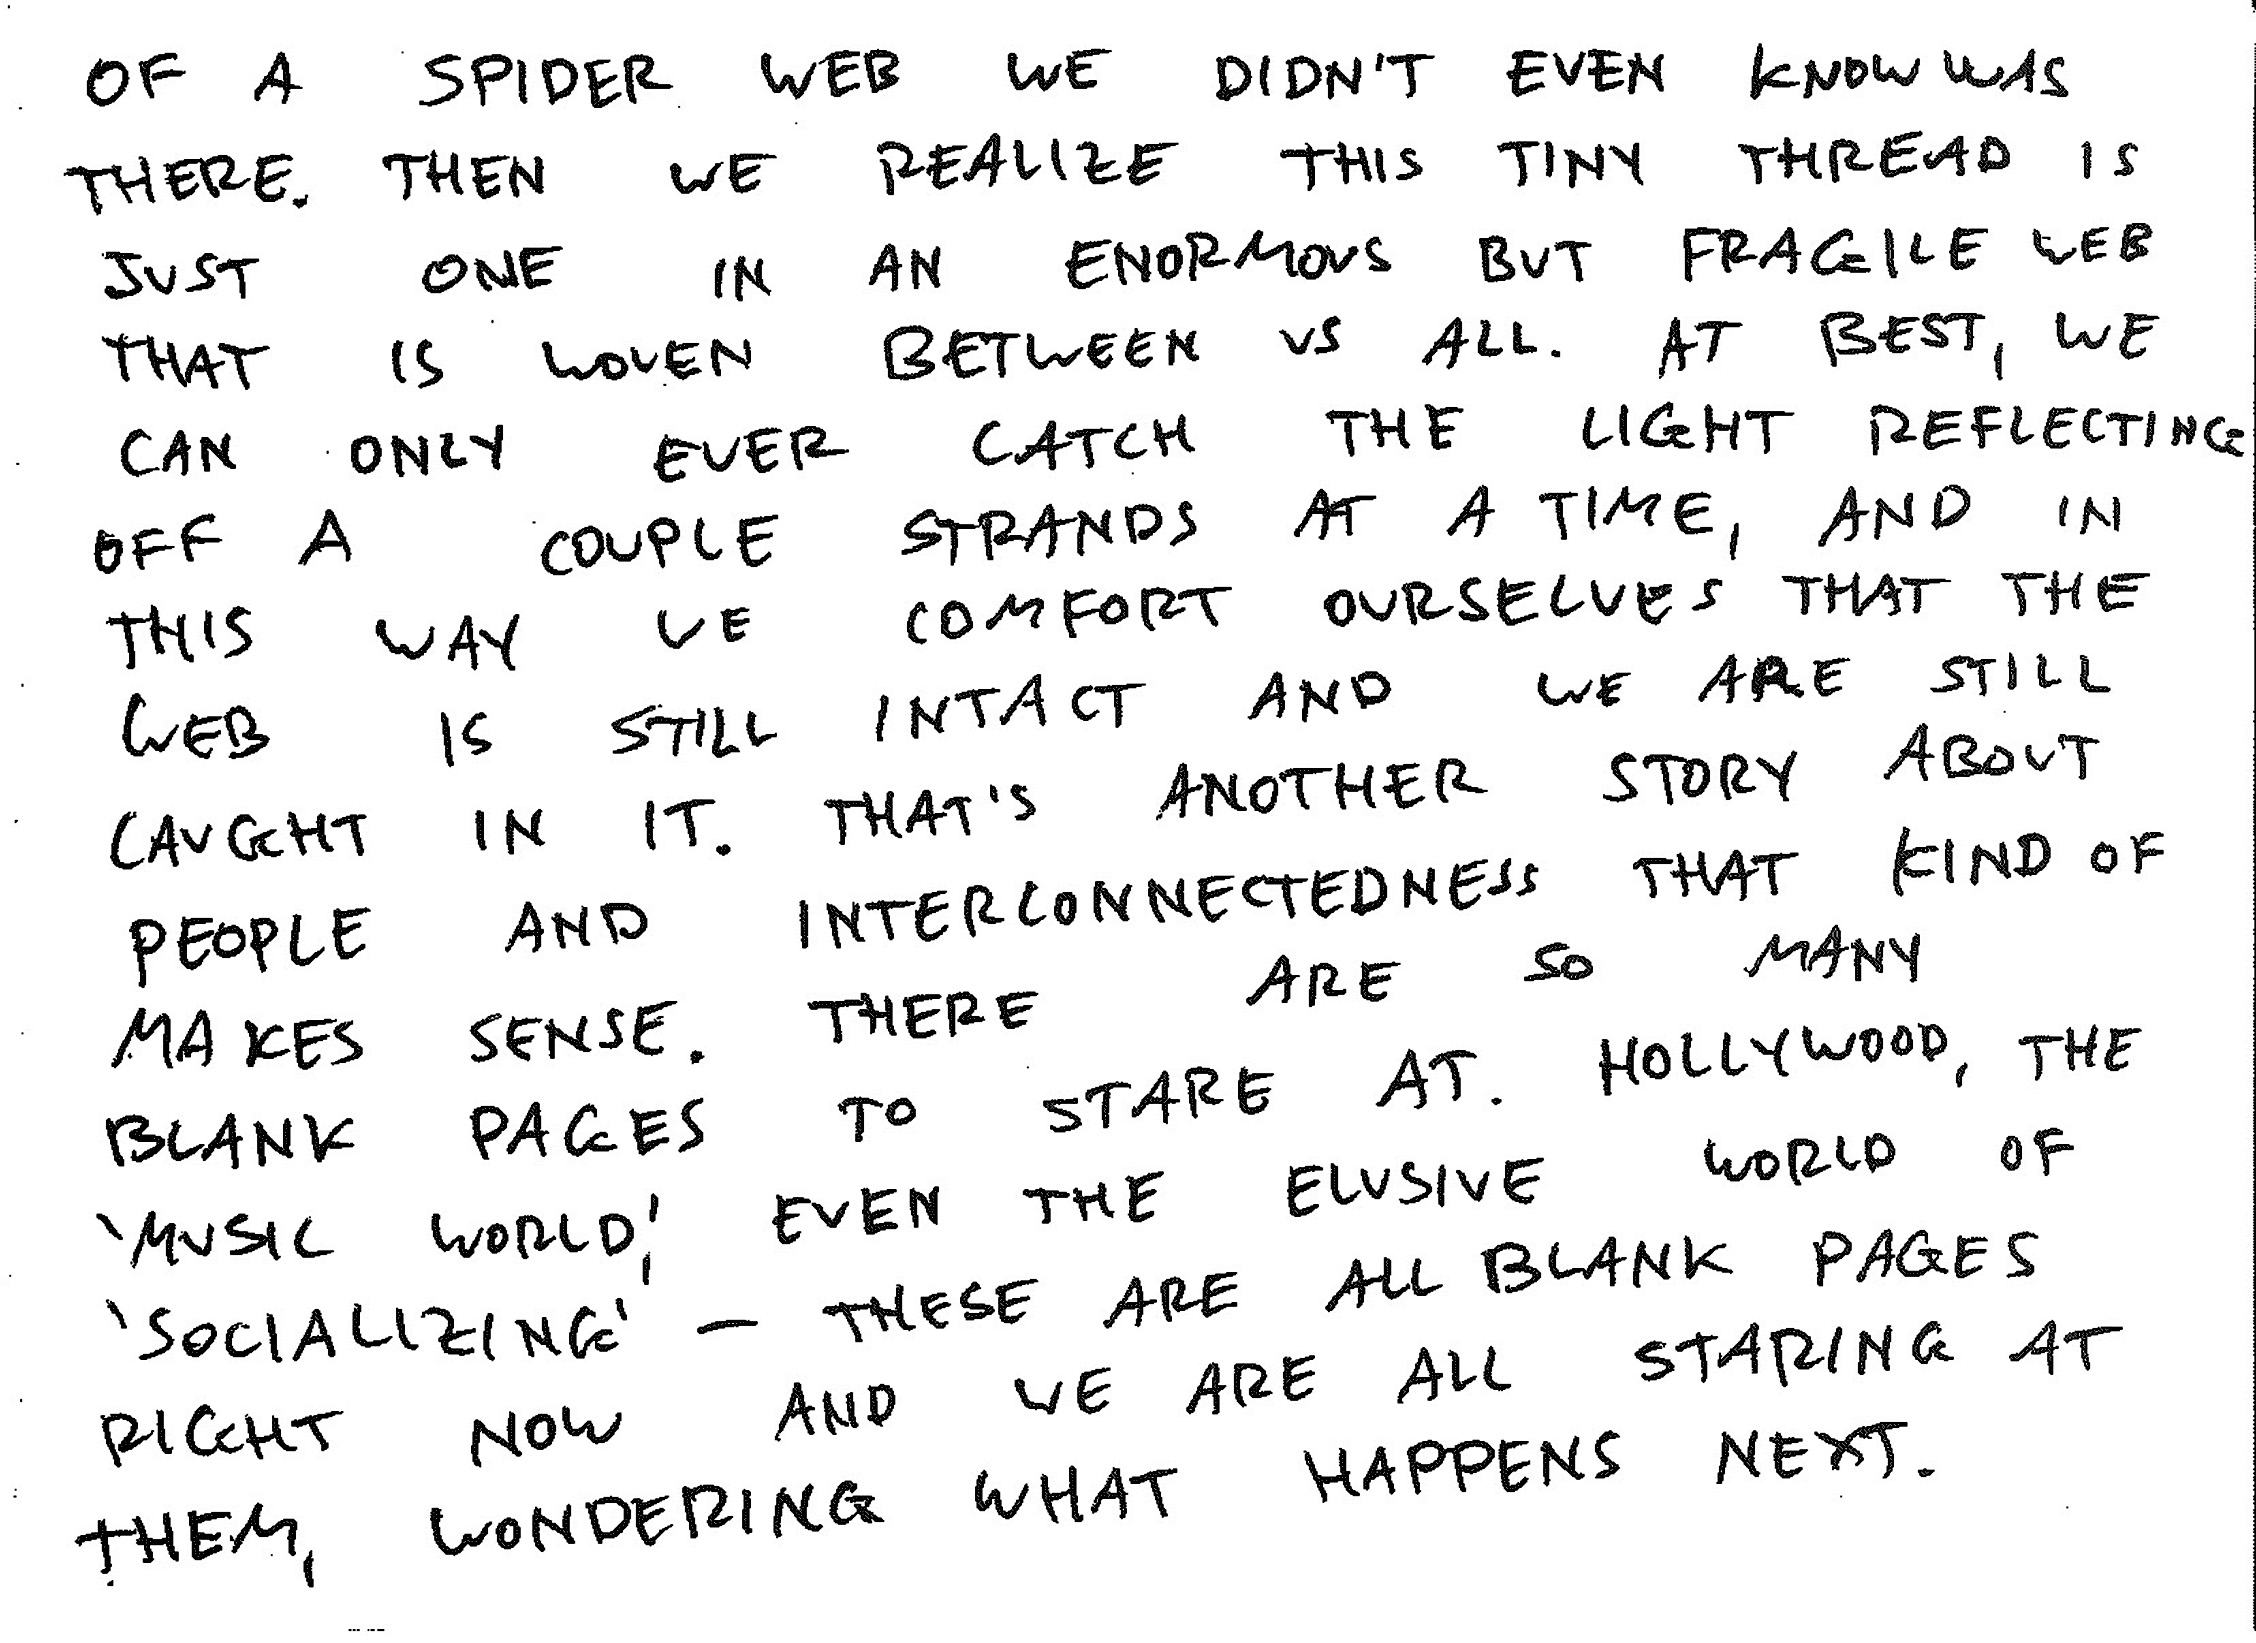 OF A SPIDER WEB WE DIDN'T EVEN KNOW WAS
THERE. THEN WE REALIZE THIS TINY THREAD IS
JUST ONE IN AN ENORMOUS BUT FRAGILE WEB
THAT IS WOVEN BETWEEN US ALL. AT BEST, WE
CAN ONLY EVER CATCH THE LIGHT REFLECTING
OFF A COUPLE STRANDS AT A TIME, AND IN
THIS WAY WE COMFORT OURSELVES THAT THE
WEB IS STILL INTACT AND WE ARE STILL
CAUGHT IN IT. THAT'S ANOTHER STORY ABOUT
PEOPLE AND INTERCONNECTEDNESS THAT KIND OF
MAKES SENSE. THERE ARE SO MANY
BLANK PAGES TO STARE AT. HOLLYWOOD, THE
'MUSIC WORLD,' EVEN THE ELUSIVE WORLD OF
'SOCIALIZING' – THESE ARE ALL BLANK PAGES
RIGHT NOW AND WE ARE ALL STARING AT
THEM, WONDERING WHAT HAPPENS NEXT.